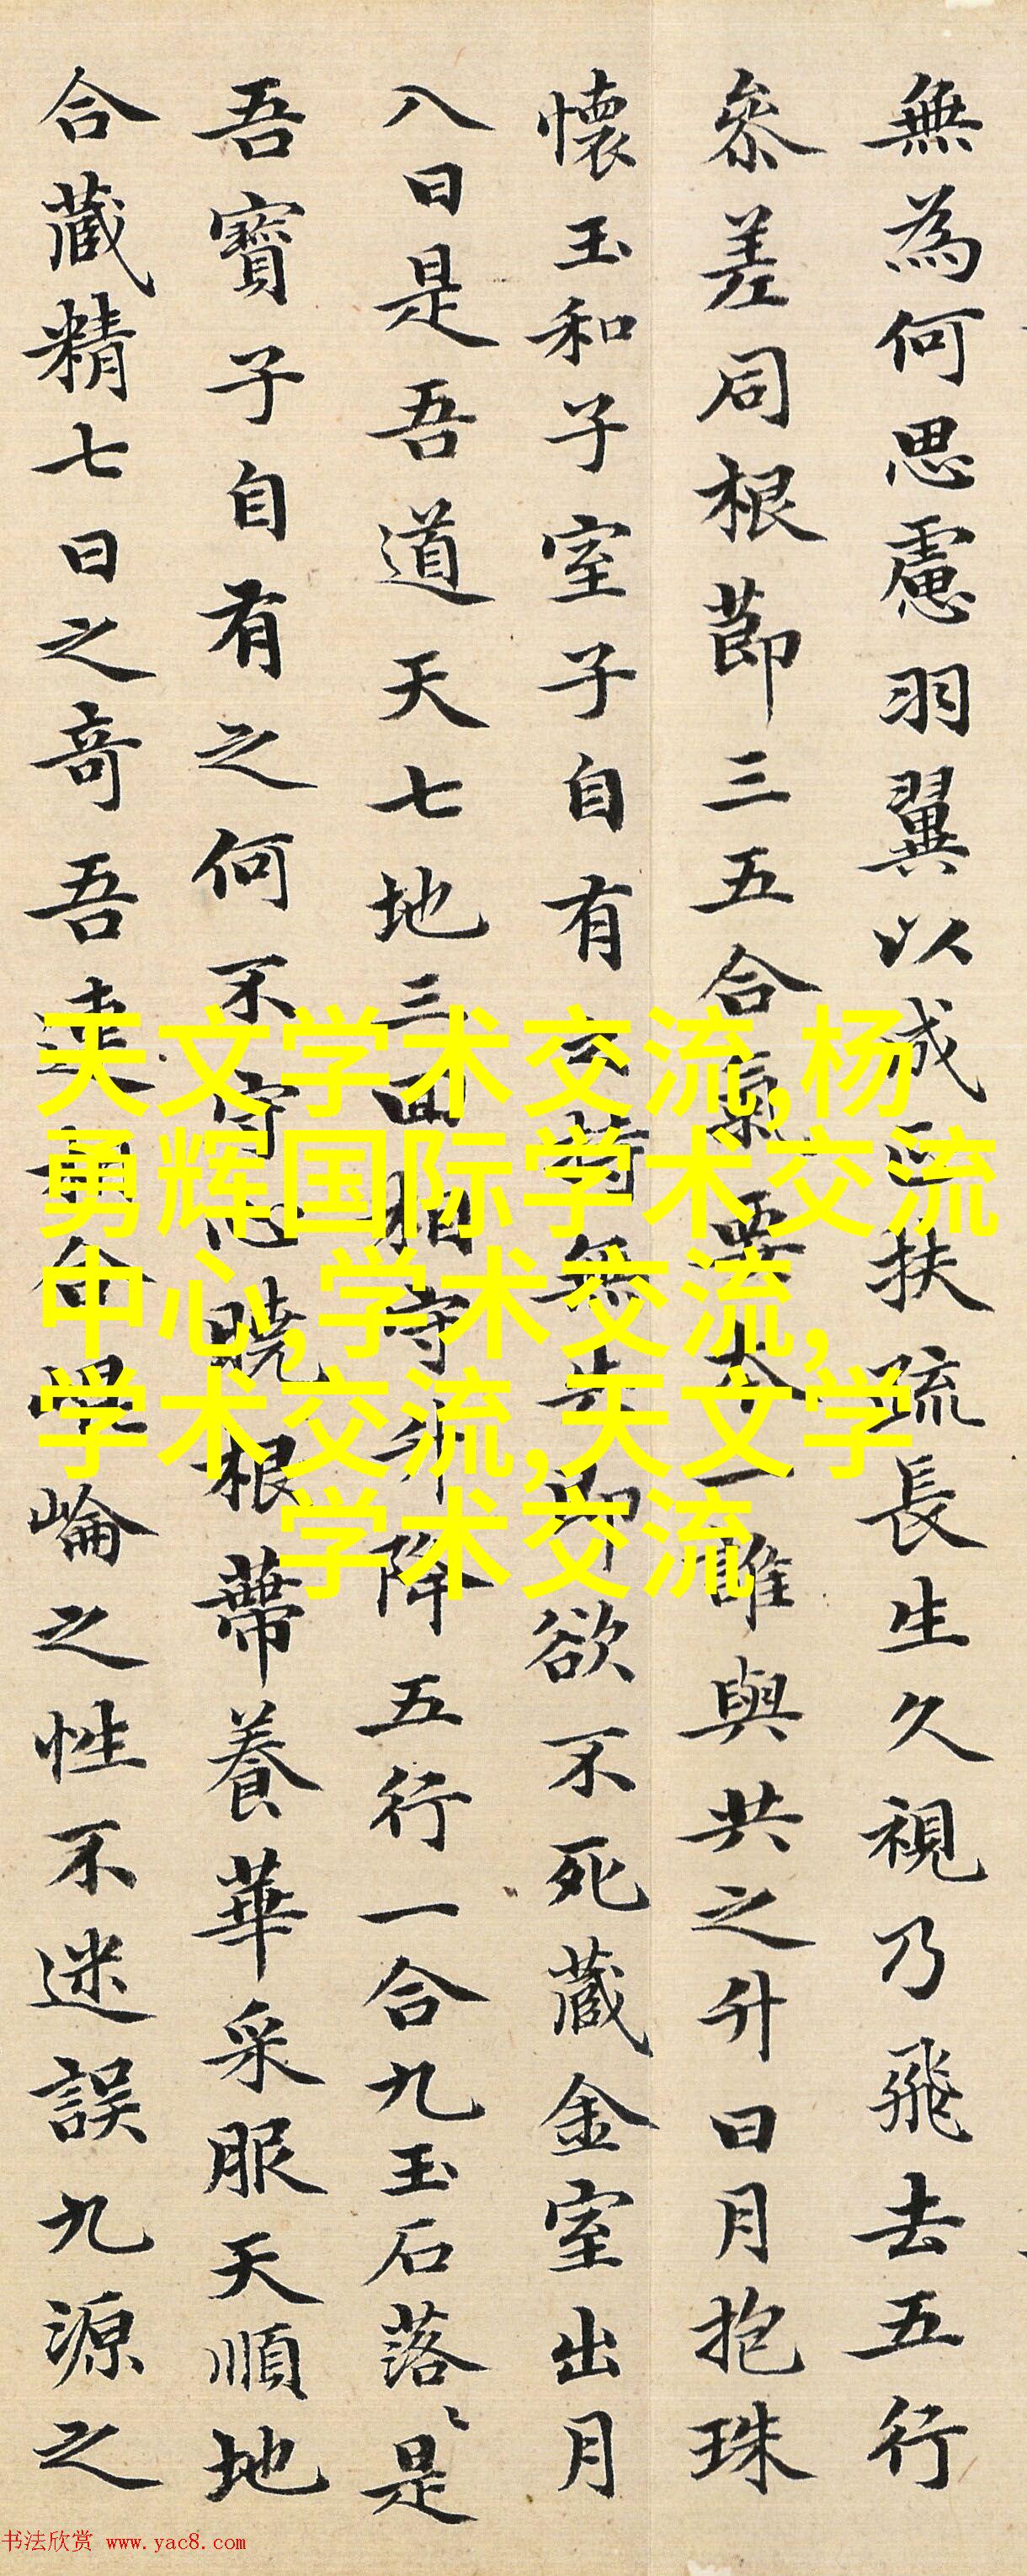 無為何思慮羽翼以成扶疏長生久視乃飛去五行
叅差同根莭三五合氣要本一誰與共之升日月抱珠
懷玉和子室子自有持無失即欲不死藏金室出月
入日是吾道天七地三回相守升降五行一合九玉石落〻是
吾寶子自有之何不守心曉根蔕養華采服天順地
合藏精七日之奇吾連崙之性不迷誤九源之
天文学术交流,杨
勇辉国际学术交流
中心,学术交流,
学术交流,天文学
学术交流
书法欣赏 www.yac8.com